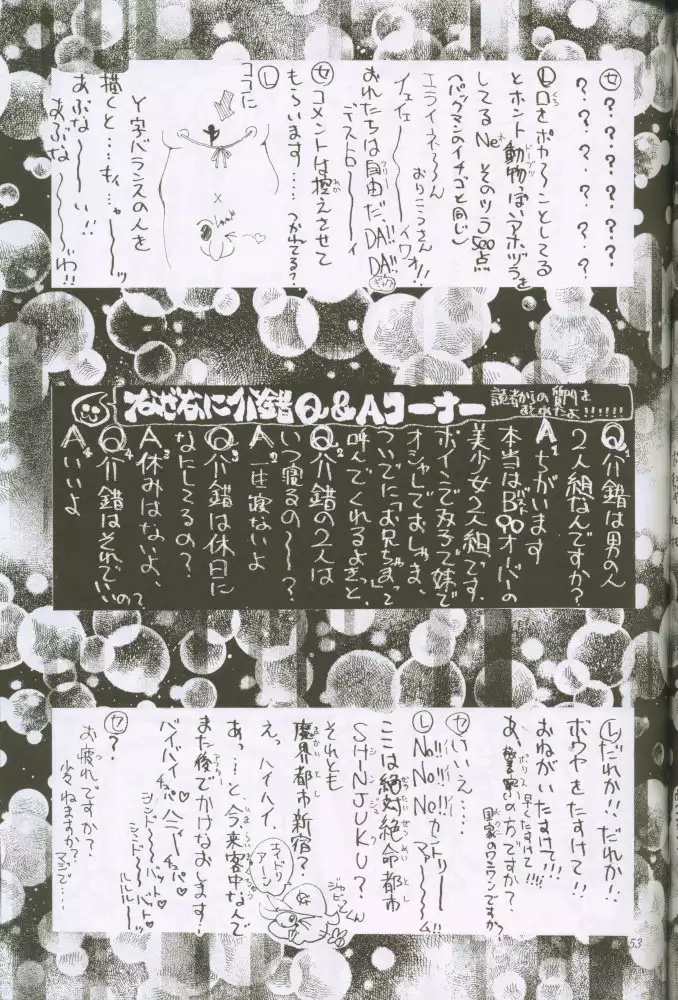 セ ？？？？？？？
？？？？
L 口をポカ〜〜ンとしてる
とホント動物っぽいアホヅラを
してるNe そのツラ500点
パックマンのイチゴと同じ
エライネ〜〜ん
おりこうさん
イェイェ〜〜〜イワオ!!
おれたちは自由だ、DA!! DA!!
デストローイ
セ コメントは控えさせて
もらいます…… つかれてる？
L ココに
Y字バランスの人を
描くと…もィ…ャーーッ
あぶなーーい!!
あぶな〜〜〜わ!!
なぜなに介錯Q&Aコーナー
読者からの質問をまとめたよ!!!!!!
Q1 介錯は男の人
2人組なんですか？
A1 ちがいます
本当はB90オーバーの
美少女2人組です.
ボインでメガネで妹で
オシャレでおしゃま、
ついでに「お兄ちゃま」って
呼んでくれるよきっと、
Q2 介錯の2人は
いつ寝るの〜〜？
A2 一生寝ないよ
Q3 介錯は休日に
なにしてるの？
A3 休みはないよ、
Q4 介錯はそれでいいの？
A4 いいよ
L だれか!! だれか!!
ボウヤをたすけて!!
おねがいたすけて!!
早くたすけて!!!
あ、警察の方ですか？
国家のワンワンですか？
セ いいえ……
L No!! No!! No!! カントリー
マァーーーム
ここは絶対絶命都市
SHINJUKU？
それとも
魔界都市新宿？
えっ、ハイハイ、
あっ…と、今、来客中なんで
また後でかけなおします!
バイバイ チュパ♡ ハニー♡ チュパ♡
シンドーーバット♡
シンドーーバットー
ルルルー
エイドリアーン
ジャビットくん
セ ？
お疲れですか？
少しねますか？
マジで…
53